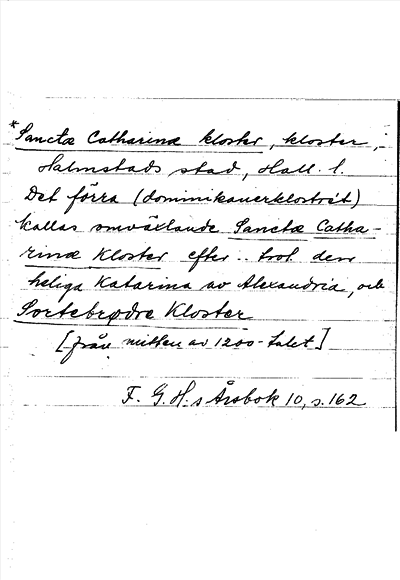 *Sanctæ Catharinæ kloster, kloster, i
Halmstads stad, Hall. l.
Det förra (dominikanerklostret)
kallas omväxlande Sanctæ Catha-
rinæ Kloster efter .. trol. den
heliga Katarina av Alexandria, och
Sortebrødre Kloster
[från mitten av 1200-talet]
F. G. H.s Årsbok 10, s. 162